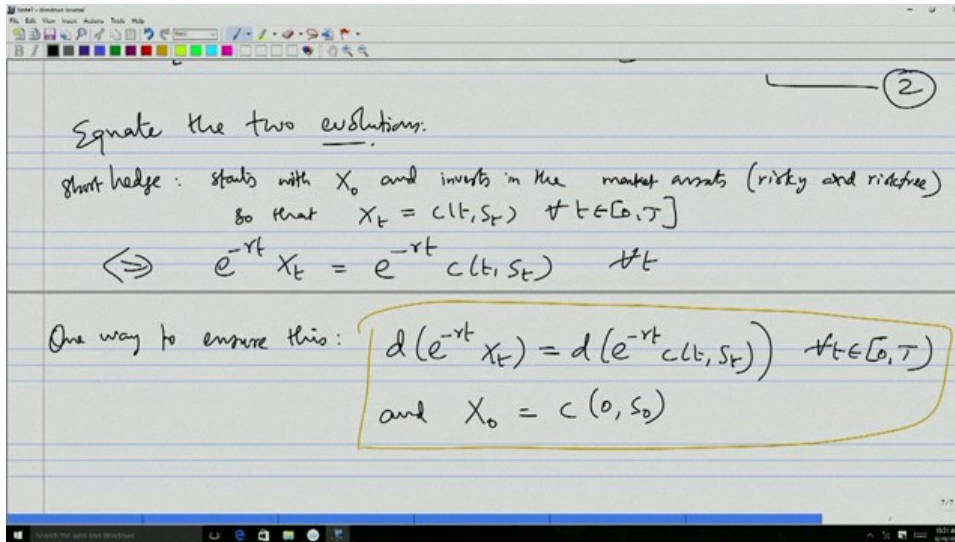 Note1 - Windows Journal
File Edit View Insert Actions Tools Help
B I
2
Equate the two evolutions.
Short hedge : starts with X₀ and invests in the market assets (risky and riskfree)
so that X_t = c(t, S_t) ∀ t∈[0, T]
⇔ e^{-rt} X_t = e^{-rt} c(t, S_t) ∀t
One way to ensure this :
d(e^{-rt} X_t) = d(e^{-rt} c(t, S_t)) ∀t∈[0, T)
and X₀ = c(0, S₀)
7/7
Search the web and Windows